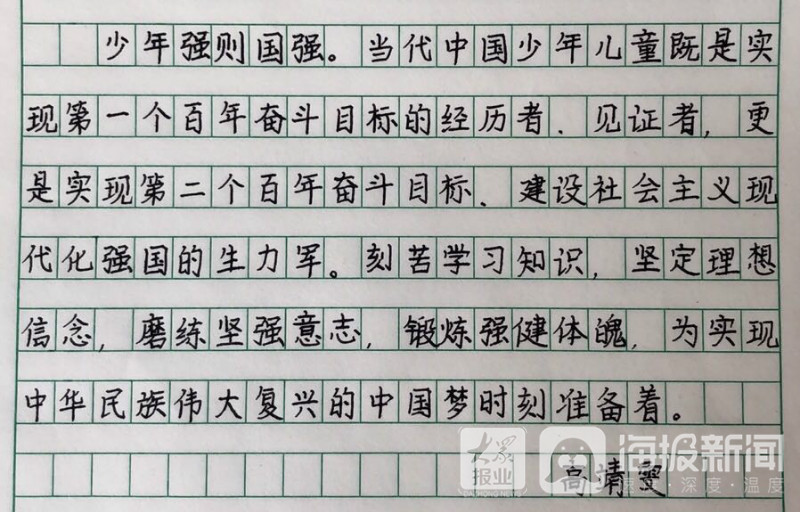 少年强则国强。当代中国少年儿童既是实
现第一个百年奋斗目标的经历者、见证者，更
是实现第二个百年奋斗目标、建设社会主义现
代化强国的生力军。刻苦学习知识，坚定理想
信念，磨练坚强意志，锻炼强健体魄，为实现
中华民族伟大复兴的中国梦时刻准备着。
大众报业 海报新闻
速度·深度·温度
高靖雯